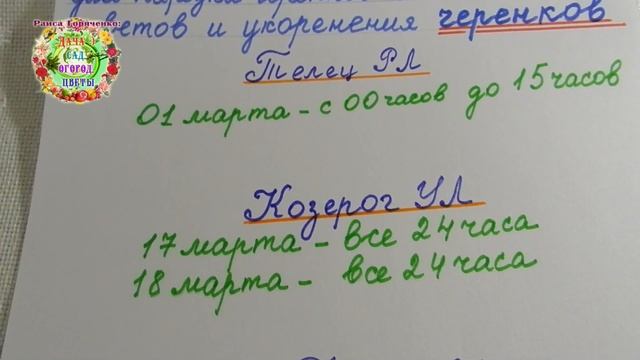 Раиса Горяченко:
ДАЧА
САД
ОГОРОД
ЦВЕТЫ
и укоренения черенков
Телец РЛ
01 марта - с 00 часов до 15 часов
Козерог УЛ
17 марта - все 24 часа
18 марта - все 24 часа